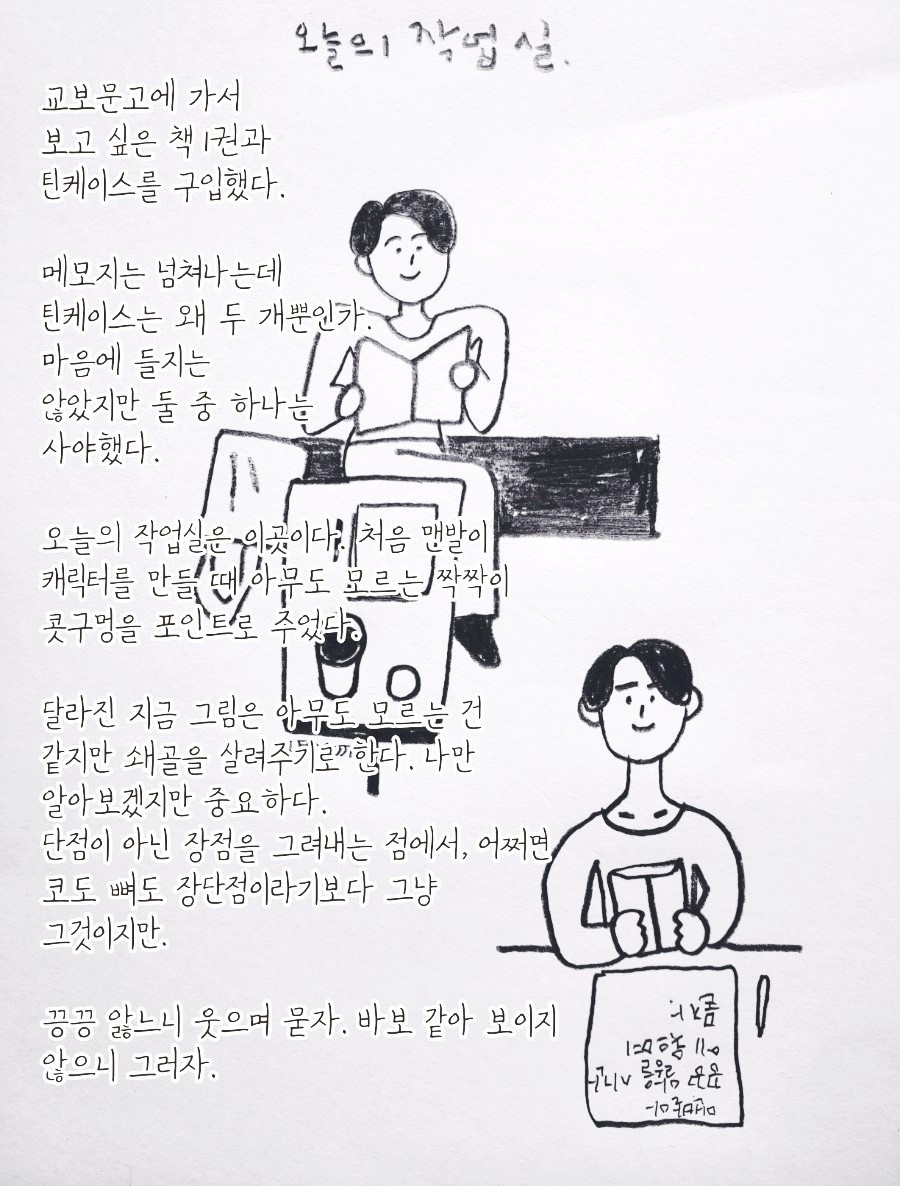 오늘의 작업실.
교보문고에 가서
보고 싶은 책 1권과
틴케이스를 구입했다.
메모지는 넘쳐나는데
틴케이스는 왜 두 개뿐인가.
마음에 들지는
않았지만 둘 중 하나는
사야했다.
오늘의 작업실은 이곳이다. 처음 맨발이
캐릭터를 만들 때 아무도 모르는 짝짝이
콧구멍을 포인트로 주었다.
달라진 지금 그림은 아무도 모르는 건
같지만 쇄골을 살려주기로 한다. 나만
알아보겠지만 중요하다.
단점이 아닌 장점을 그려내는 점에서, 어쩌면
코도 뼈도 장단점이라기보다 그냥
그것이지만.
끙끙 앓느니 웃으며 묻자. 바보 같아 보이지
않으니 그러자.